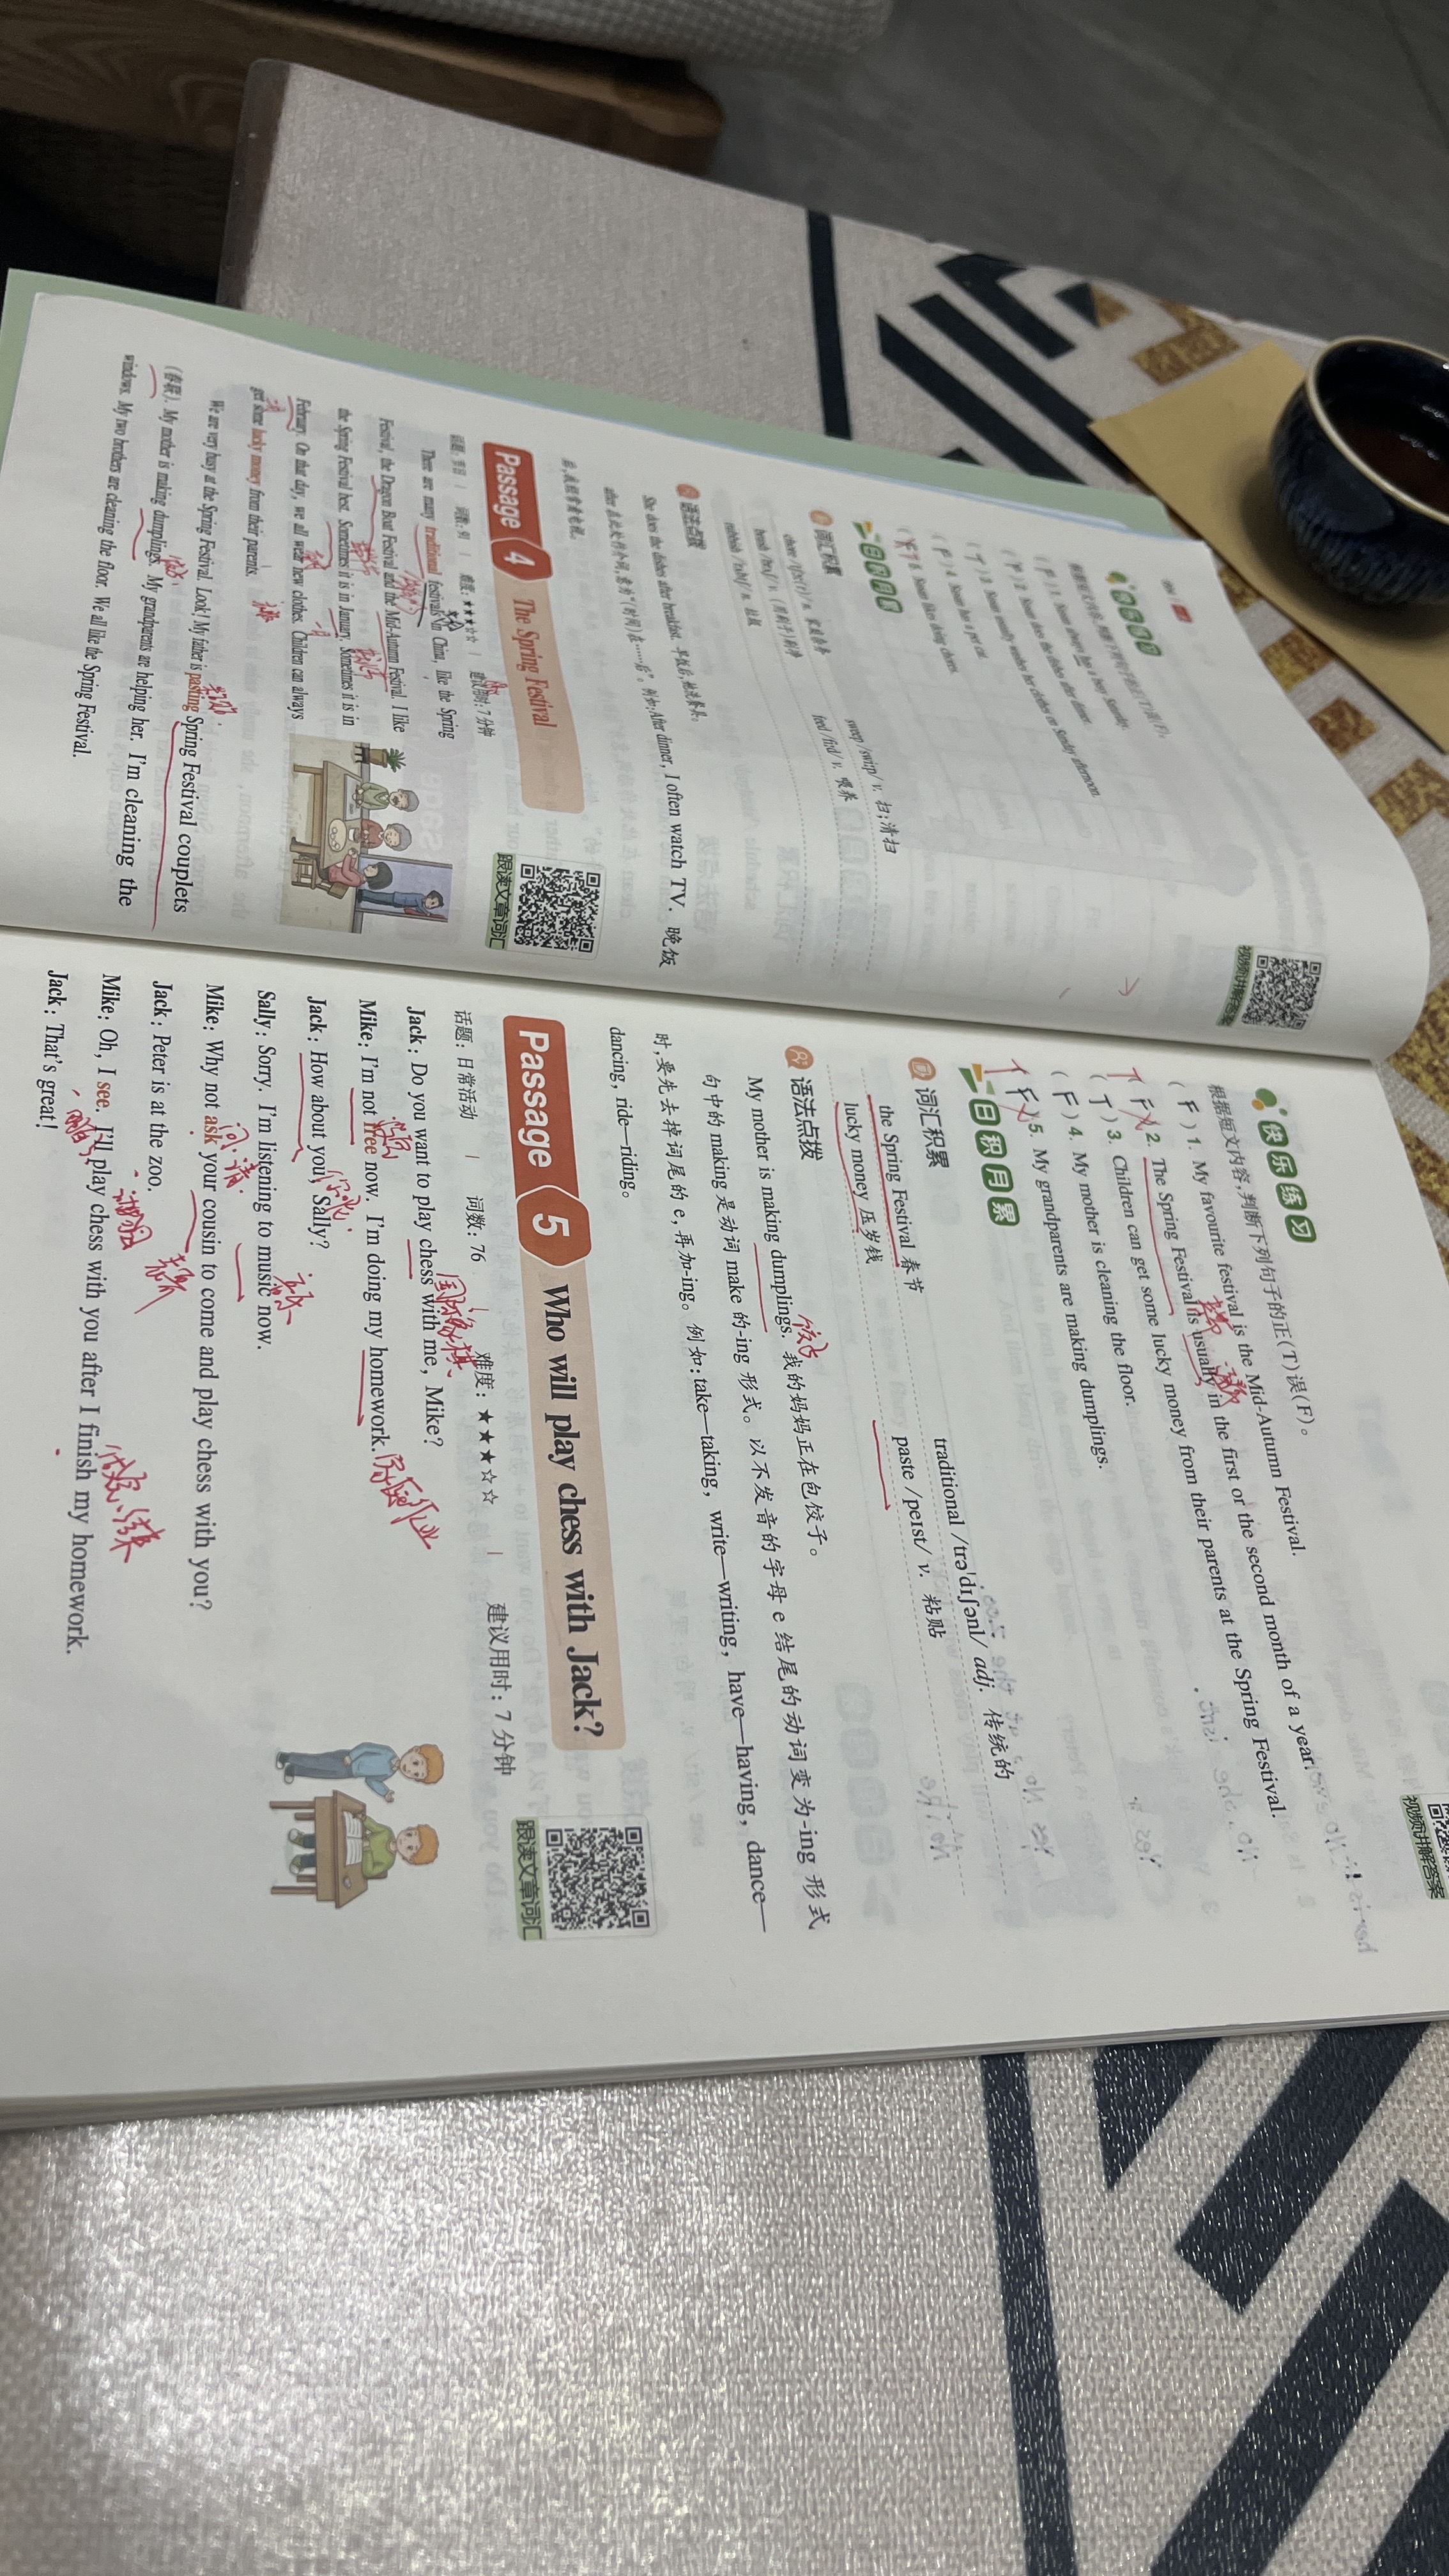 快乐练习
根据短文内容,判断下列句子的正(T)误(F)。
( F ) 1. Susan always has a busy Sunday.
( F ) 2. Susan does the dishes after dinner.
( T ) 3. Susan usually washes her clothes on Sunday afternoon.
( F ) 4. Susan has a pet cat.
5. Susan likes doing chores.
日积月累
词汇积累
sweep /swiːp/ v. 扫;清扫
feed /fiːd/ v. 喂养
rubbish /ˈrʌbɪʃ/ n. 垃圾
语法点拨
She does the dishes after breakfast. 早饭后,她洗餐具。
after 在此处作介词,表示“(时间)在……后”。例如:After dinner, I often watch TV. 晚饭
后,我经常看电视。
Passage 4 The Spring Festival
话题: 节日 | 词数: 91 | 难度: ★★★☆☆ | 建议用时: 7 分钟
跟读文章词汇
There are many traditional festivals in China, like the Spring
Festival, the Dragon Boat Festival and the Mid-Autumn Festival. I like
the Spring Festival best. Sometimes it is in January. Sometimes it is in
February. On that day, we all wear new clothes. Children can always
get some lucky money from their parents.
We are very busy at the Spring Festival. Look! My father is pasting Spring Festival couplets
(春联). My mother is making dumplings. My grandparents are helping her. I'm cleaning the
windows. My two brothers are cleaning the floor. We all like the Spring Festival.
视频讲解答案
快乐练习
根据短文内容,判断下列句子的正(T)误(F)。
( F ) 1. My favourite festival is the Mid-Autumn Festival.
T ( F ) 2. The Spring Festival is usually in the first or the second month of a year.
( T ) 3. Children can get some lucky money from their parents at the Spring Festival.
( F ) 4. My mother is cleaning the floor.
T ( F ) 5. My grandparents are making dumplings.
日积月累
词汇积累
traditional /trəˈdɪʃənl/ adj. 传统的
the Spring Festival 春节
paste /peɪst/ v. 粘贴
lucky money 压岁钱
语法点拨
饺子
My mother is making dumplings. 我的妈妈正在包饺子。
句中的 making 是动词 make 的-ing 形式。以不发音的字母 e 结尾的动词变为-ing 形式
时,要先去掉词尾的 e,再加-ing。例如:take—taking, write—writing, have—having, dance—
dancing, ride—riding。
Passage 5 Who will play chess with Jack?
话题: 日常活动 | 词数: 76 | 难度: ★★★☆☆ | 建议用时: 7 分钟
跟读文章词汇
国际象棋
Jack: Do you want to play chess with me, Mike?
Mike: I'm not free now. I'm doing my homework.
Jack: How about you, Sally?
Sally: Sorry. I'm listening to music now.
问;请
Mike: Why not ask your cousin to come and play chess with you?
Jack: Peter is at the zoo.
Mike: Oh, I see. I'll play chess with you after I finish my homework.
Jack: That's great!
视频讲解答案